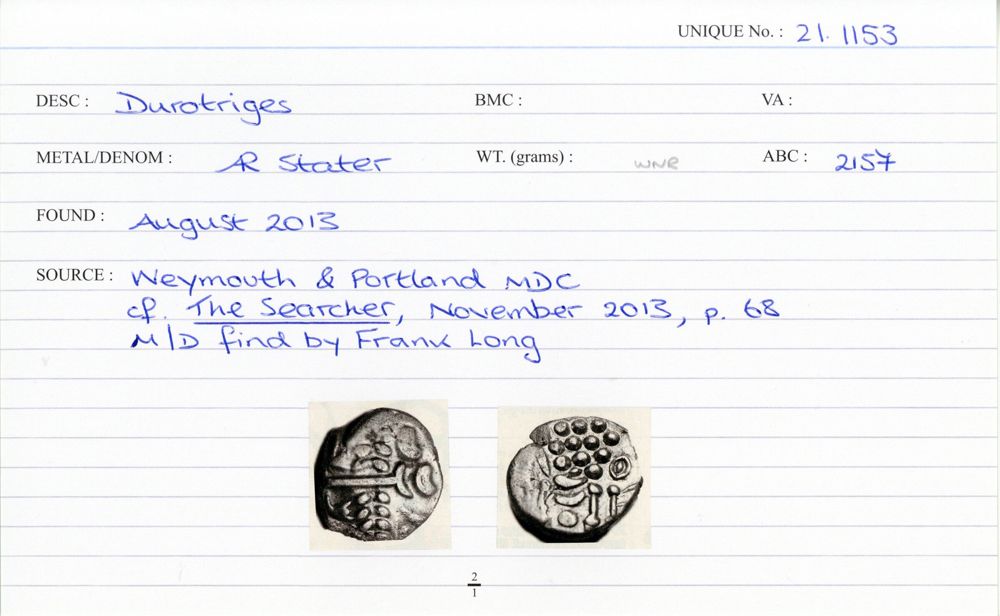 UNIQUE No. : 21. 1153
DESC : Durotriges BMC : VA :
METAL/DENOM : AR Stater WT. (grams) : WNR ABC : 2157
FOUND : August 2013
SOURCE : Weymouth & Portland MDC
cf. The Searcher, November 2013, p. 68
M/D find by Frank Long
2
1